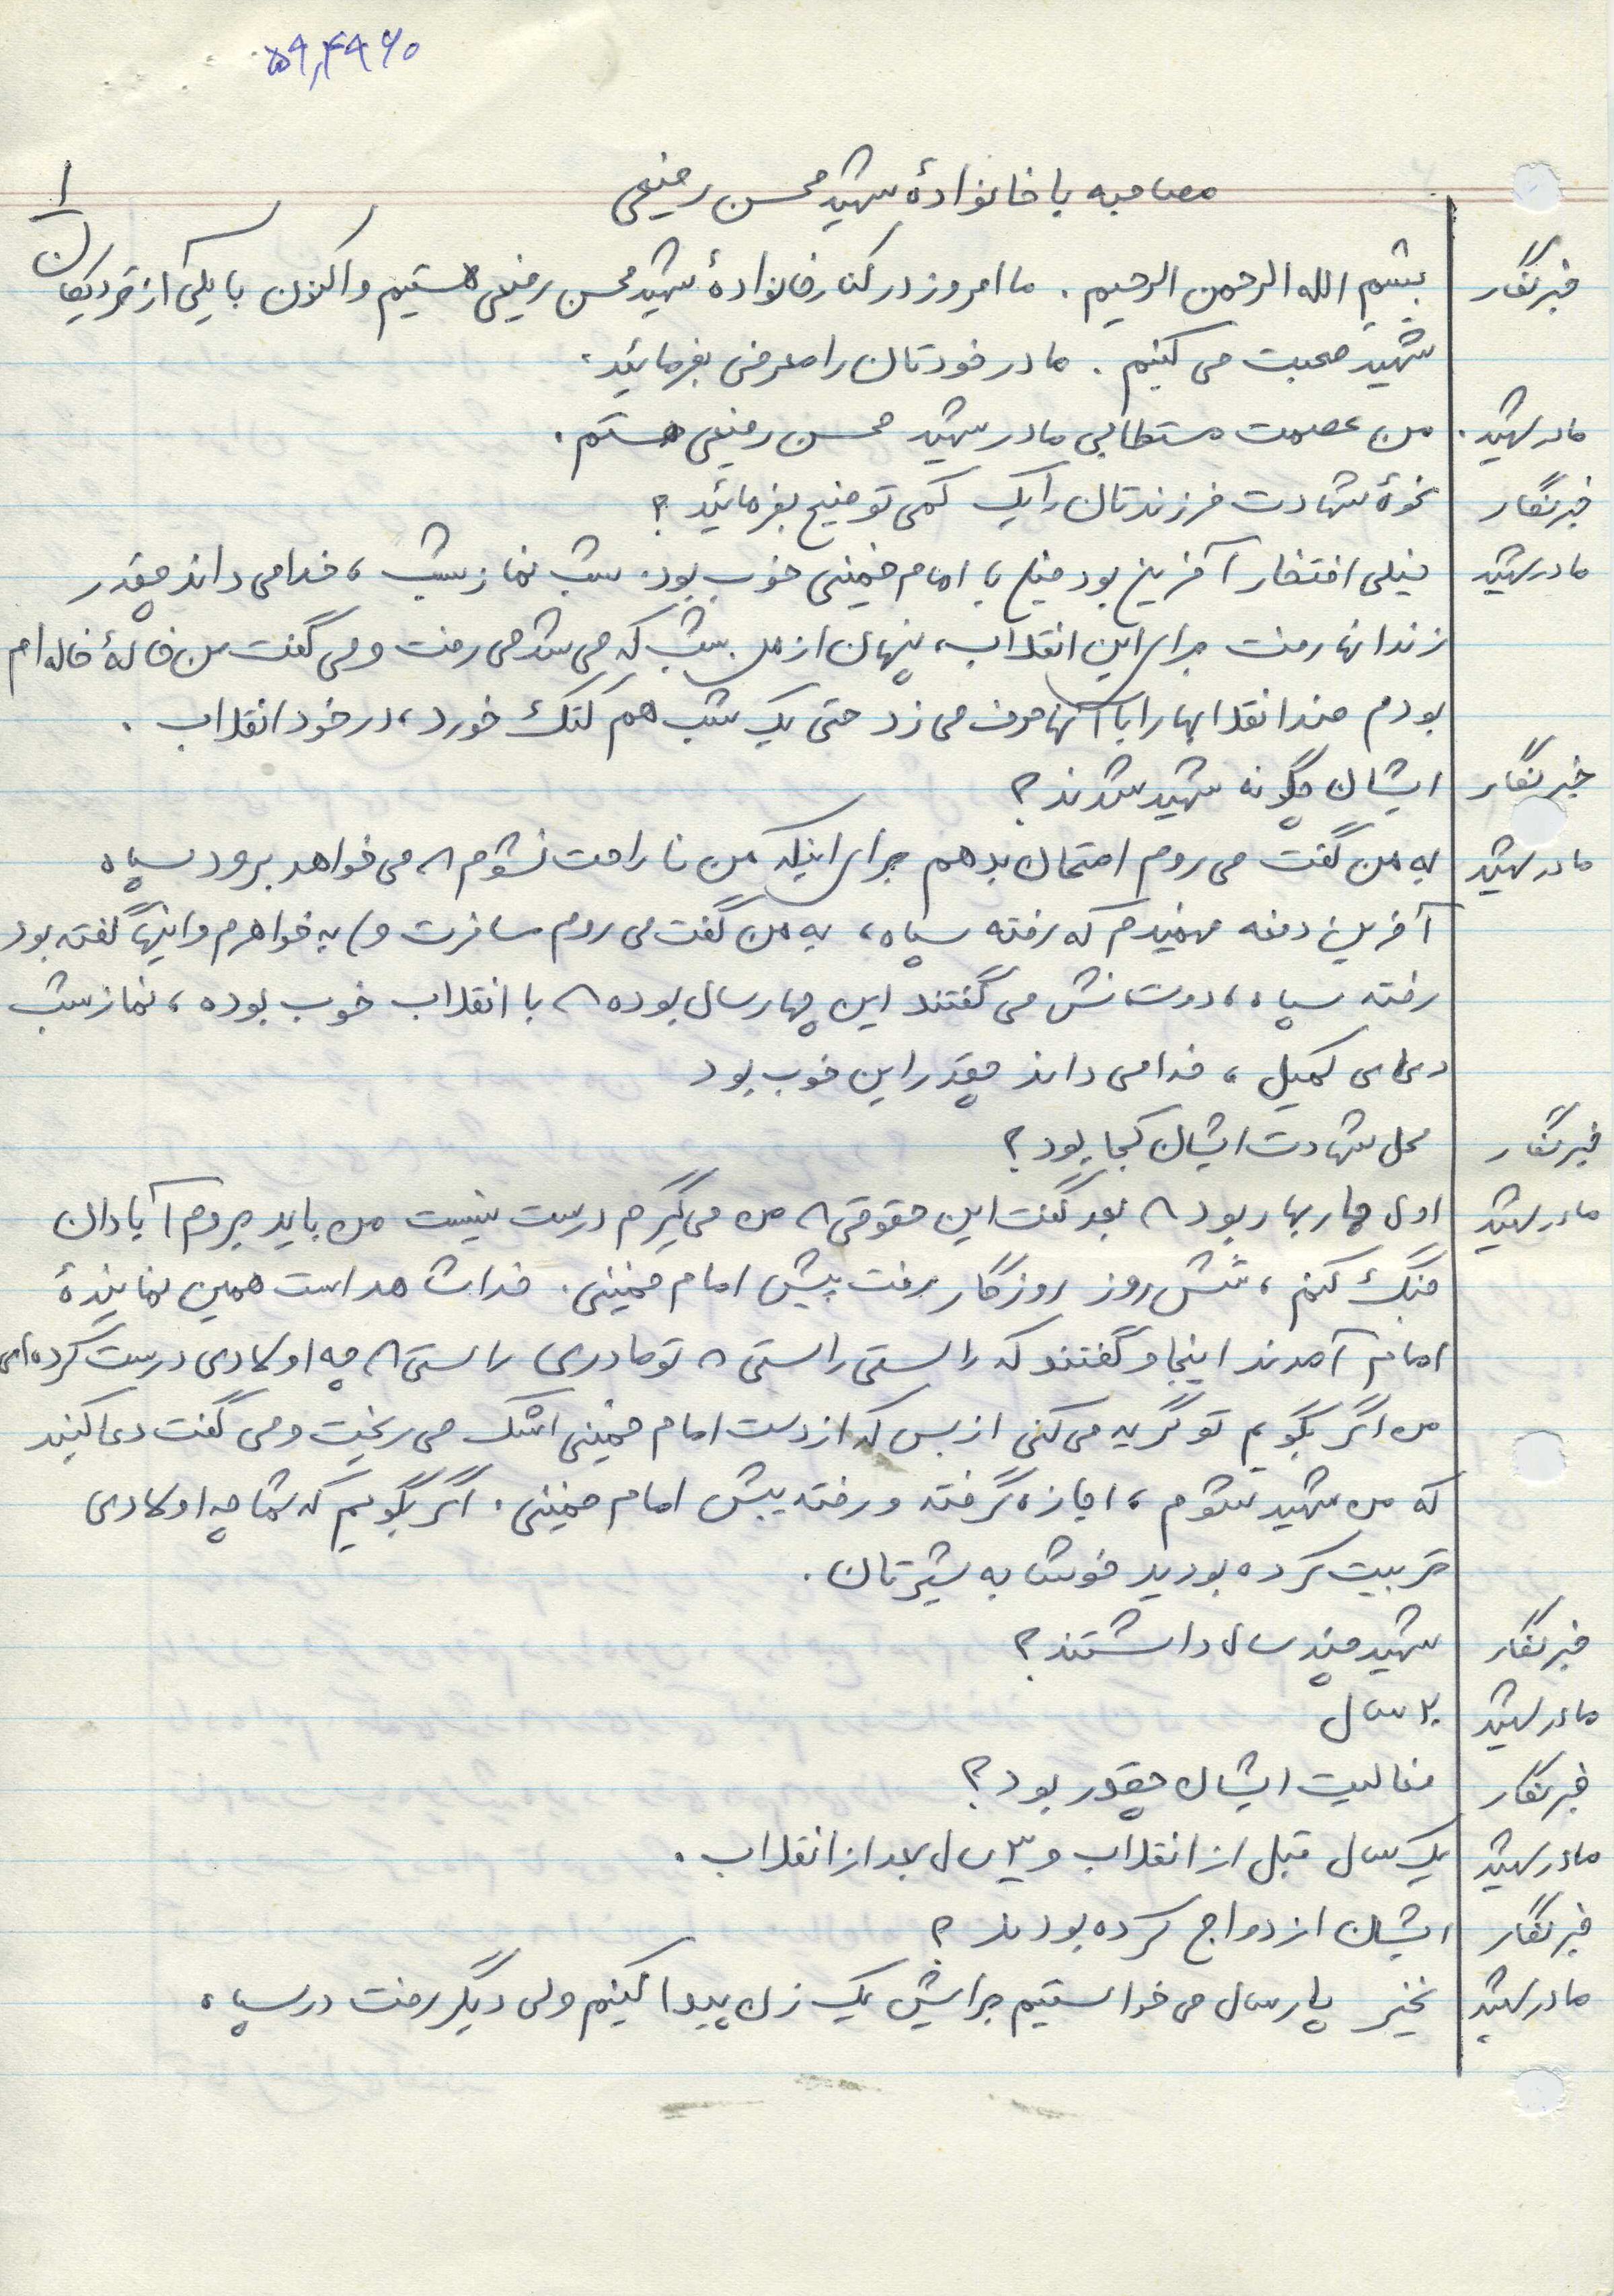 ۵۹٫۴۹۶۰
۱
مصاحبه با خانوادهٔ شهید محسن رفیعی
خبرنگار بسم الله الرحمن الرحیم . ما امروز در کنار خانوادهٔ شهید محسن رفیعی هستیم و اکنون با یکی از نزدیکان
شهید صحبت می کنیم . مادر خودتان را معرفی بفرمائید .
مادر شهید . من عصمت مستطابی مادر شهید محسن رفیعی هستم .
خبرنگار نحوهٔ شهادت فرزندتان را یک کمی توضیح بفرمائید ؟
مادر شهید خیلی افتخار آفرین بود خیلی با امام خمینی خوب بود . شب نماز شب ، خدا می داند چقدر
زندانها رفت برای این انقلاب ، پنهان از من . شب که می شد می رفت و می گفت من خانهٔ خاله ام
بودم ضد انقلابها را با آنها حرف می زد حتی یک شب هم کتک خورد ، در خود انقلاب .
خبرنگار ایشان چگونه شهید شدند ؟
مادر شهید به من گفت می روم امتحان بدهم برای اینکه من ناراحت نشوم ۸ می خواهد برود سپاه
آخرین دفعه فهمیدم که رفته سپاه ، به من گفت می روم مسافرت و) به خواهرم و اینها گفته بود
رفته سپاه ، دوستانش می گفتند این چهار سال بوده ۸ با انقلاب خوب بوده ، نماز شب
دعای کمیل ، خدا می داند چقدر این خوب بود
خبرنگار محل شهادت ایشان کجا بود ؟
مادر شهید اول چابهار بود ۸ بعد گفت این حقوقی ۸ من می گیرم درست نیست من باید بروم آبادان
جنگ کنم ، شش روز روزگار رفت پیش امام خمینی . خدا شاهد است همین نمایندهٔ
امام آمدند اینجا و گفتند که راستی راستی ۸ تو مادری راستی ۸ چه اولادی درست کرده ای
من اگر بگویم تو گریه می کنی از بس که از دست امام خمینی اشک می ریخت و می گفت دعا کنید
که من شهید شوم ، اجازه گرفته و رفته پیش امام خمینی . اگر بگویم که شما چه اولادی
تربیت کرده بودید خوشا به شیرتان .
خبرنگار شهید چند سال داشتند ؟
مادر شهید ۲۰ سال
خبرنگار فعالیت ایشان چقدر بود ؟
مادر شهید یک سال قبل از انقلاب و ۳ سال بعد از انقلاب .
خبرنگار ایشان ازدواج کرده بودند ؟
مادر شهید نخیر پارسال می خواستیم برایش یک زن پیدا کنیم ولی دیگر رفت در سپاه